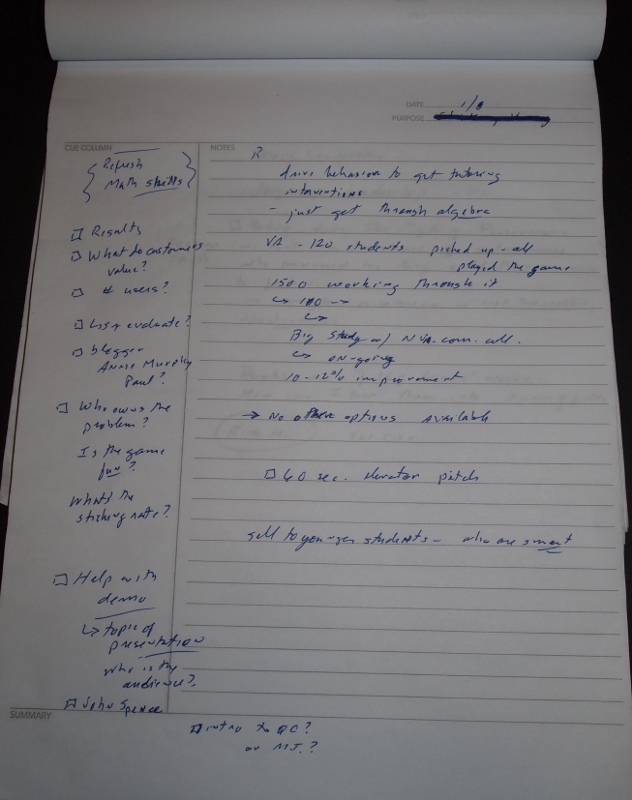 DATE 1/8
PURPOSE
CUE COLUMN
NOTES
Refresh
Math skills
R
drive behavior to get tutoring
interventions
- just get through algebra
□ Results
□ What do customers
value?
□ # users?
□ evaluate?
□ blogger
Annie Murphy
Paul?
□ Who owns the
problem?
Is the game
fun?
What's the
sticking rate?
□ Help with
demo
↳ topic of
presentation
who is the
audience?
□ John Spence
VA - 120 students picked up - all
played the game
1500 working through it
↳ 100 →
↳
Big study w/ com. coll.
↳ on-going
10-12% improvement
→ No other options available
□ 60 sec. elevator pitch
sell to younger students - who are smart
SUMMARY
□ intro to QC?
or MJ.?